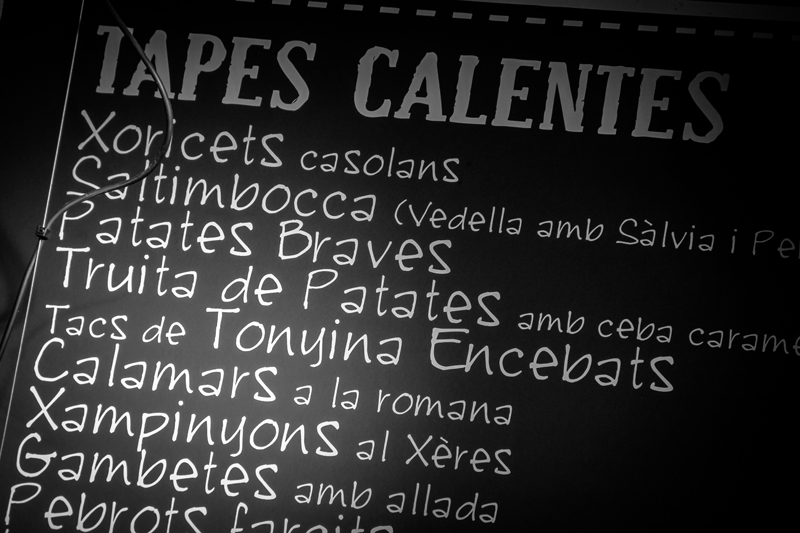 TAPES CALENTES
Xoricets casolans
Saltimbocca (Vedella amb Sàlvia i
Patates Braves
Truita de Patates amb ceba
Tacs de Tonyina Encebats
Calamars a la romana
Xampinyons al Xères
Gambetes amb allada
Pebrots farcits